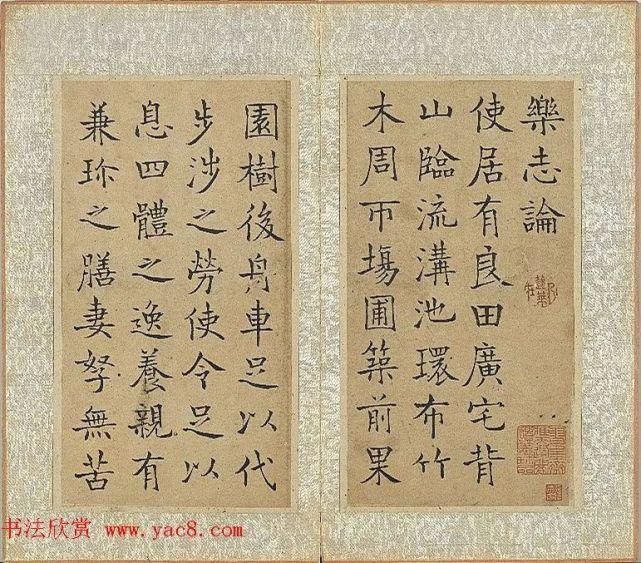 樂志論
使居有良田廣宅背
山臨流溝池環布竹
木周帀塲圃築前果
園樹後舟車足以代
步涉之勞使令足以
息四體之逸養親有
兼珎之膳妻孥無苦
书法欣赏 www.yac8.com